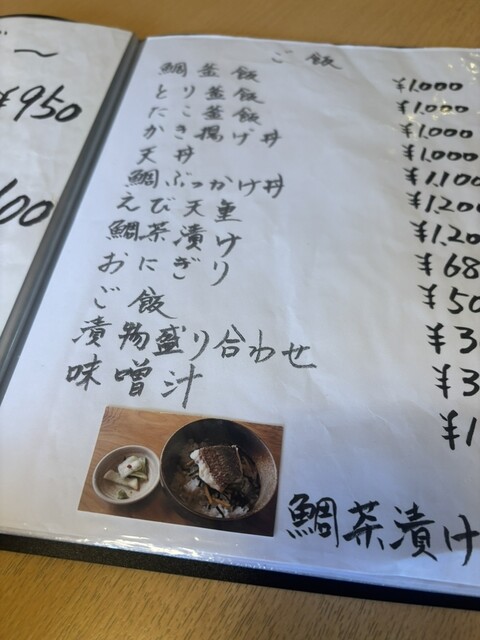 ～
¥950
00
ご飯
鯛釜飯 ¥1,000
とり釜飯 ¥1,000
たこ釜飯 ¥1,000
かき揚げ丼 ¥1,000
天丼 ¥1,100
鯛ぶっかけ丼 ¥1,200
えび天重 ¥1,20
鯛茶漬け ¥68
おにぎり ¥50
ご飯 ¥3
漬物盛り合わせ ¥3
味噌汁 ¥1
鯛茶漬け